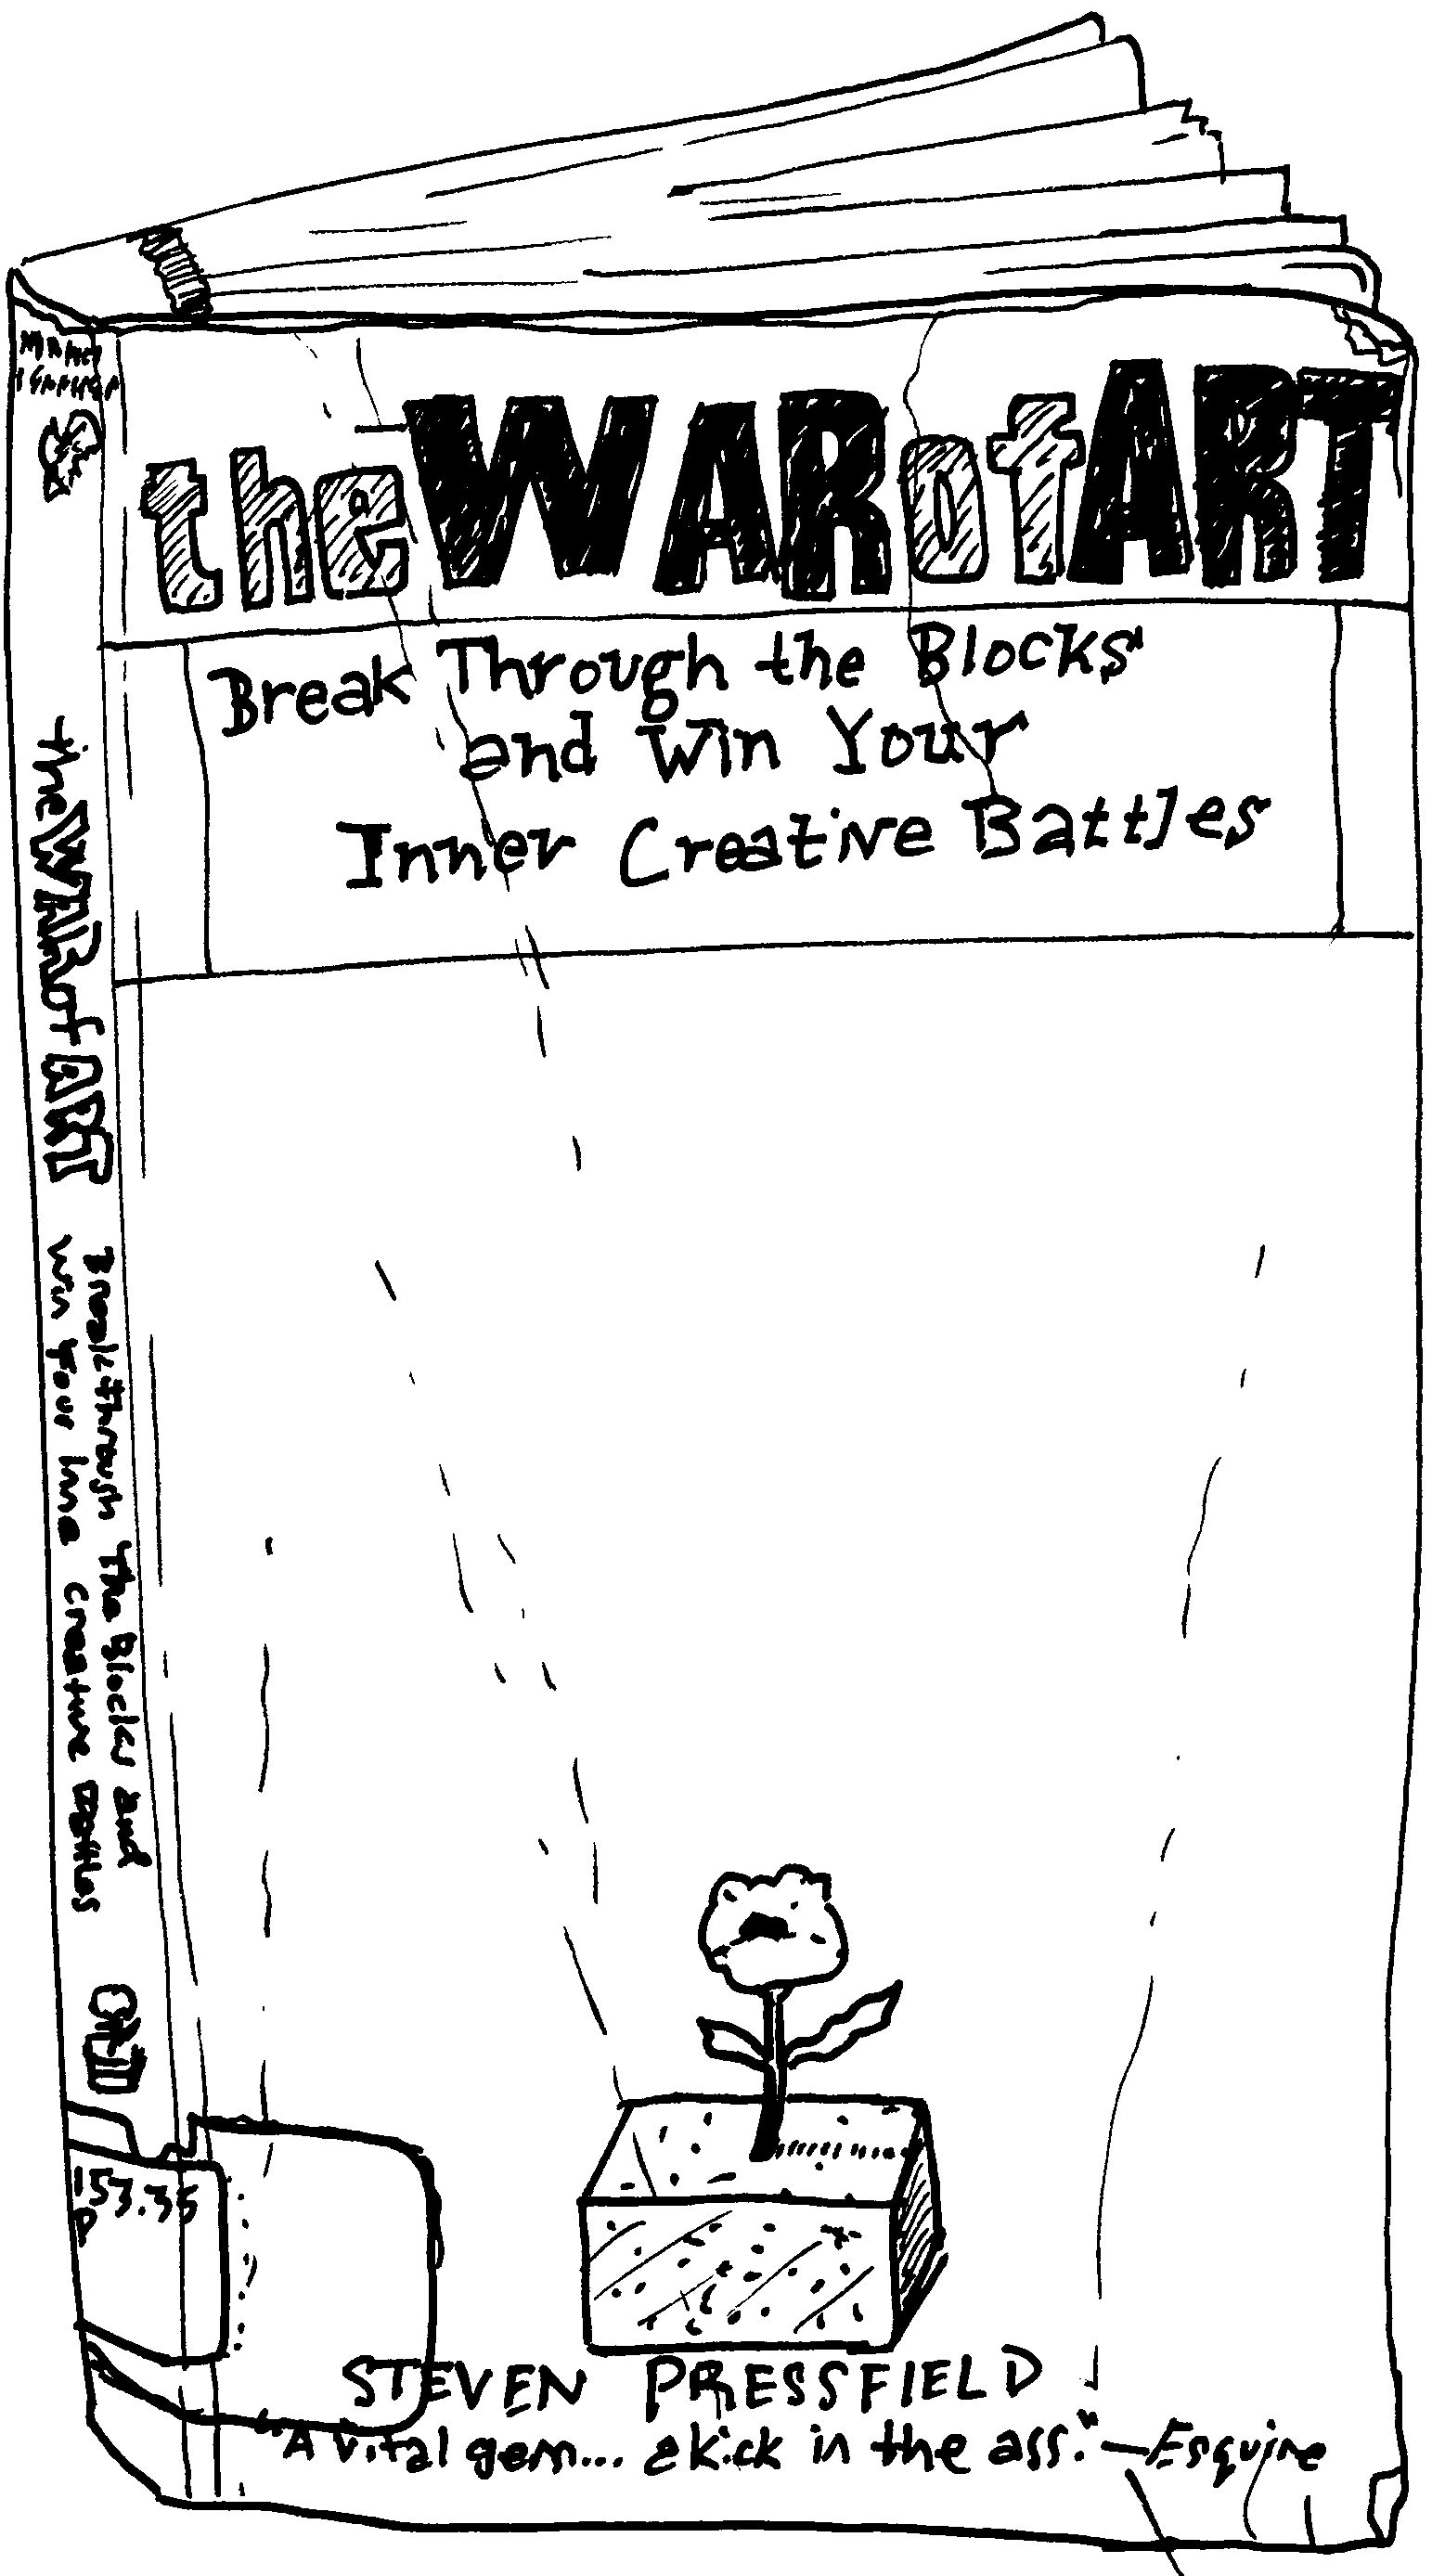 the WAR of ART
Break Through the Blocks
and Win Your
Inner Creative Battles
STEVEN PRESSFIELD
"A vital gem... a kick in the ass." —Esquire
the WAR of ART
Break through The Blocks and
Win Your Inne Creative Battles
153.35
P